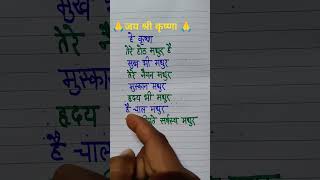 🙏जय श्री कृष्णा 🙏
हे कृष्ण
तेरे होठ मधुर है
मुख भी मधुर
तेरे नैयन मधुर
मुस्कान मधुर
हृदय भी मधुर
है चाल मधुर
सर्वस्य मधुर